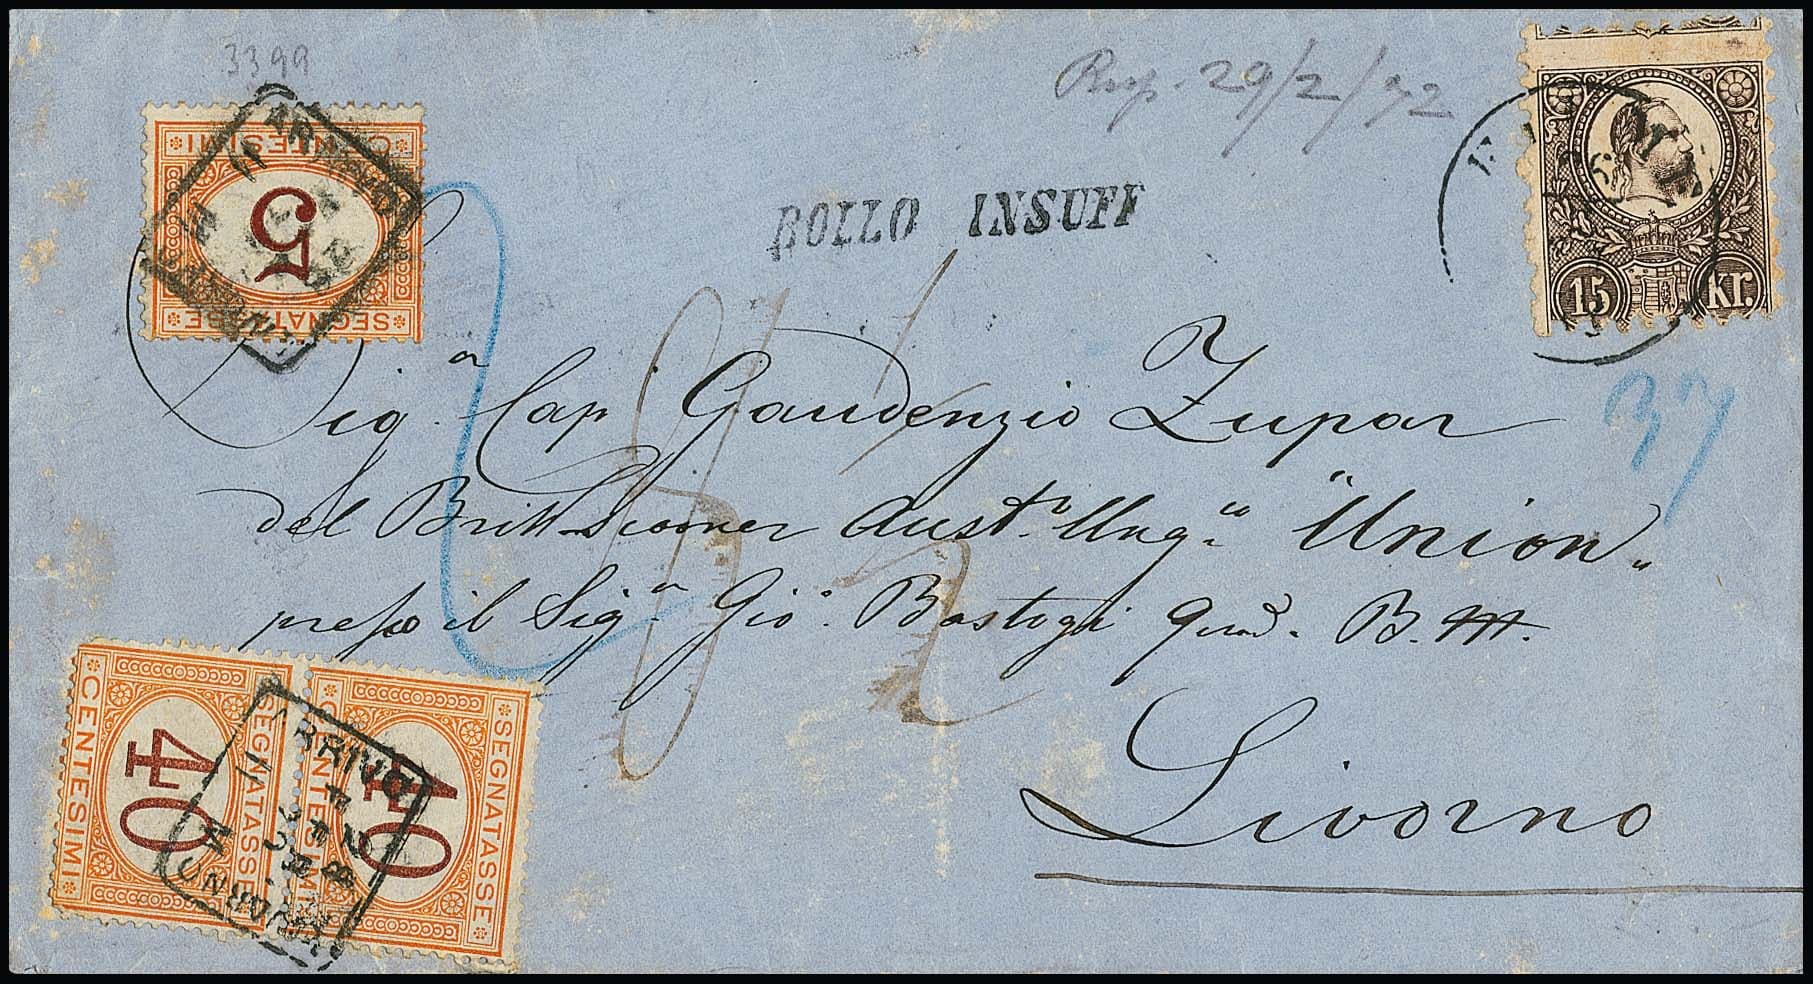 3399
Risp. 29/2/72
CENTESIMI
5
SEGNATASSE
ARRIVO
BOLLO INSUFF
15 Kr.
37
Sigᵃ Cap Gaudenzio Zupar
del Britt Scooner Austᵃ Ungᵃ "Union"
presso il Sigᵃ Gioᵃ Bastogi Quod. B. M.
Livorno
CENTESIMI
40
SEGNATASSE
CENTESIMI
40
SEGNATASSE
ARRIVO